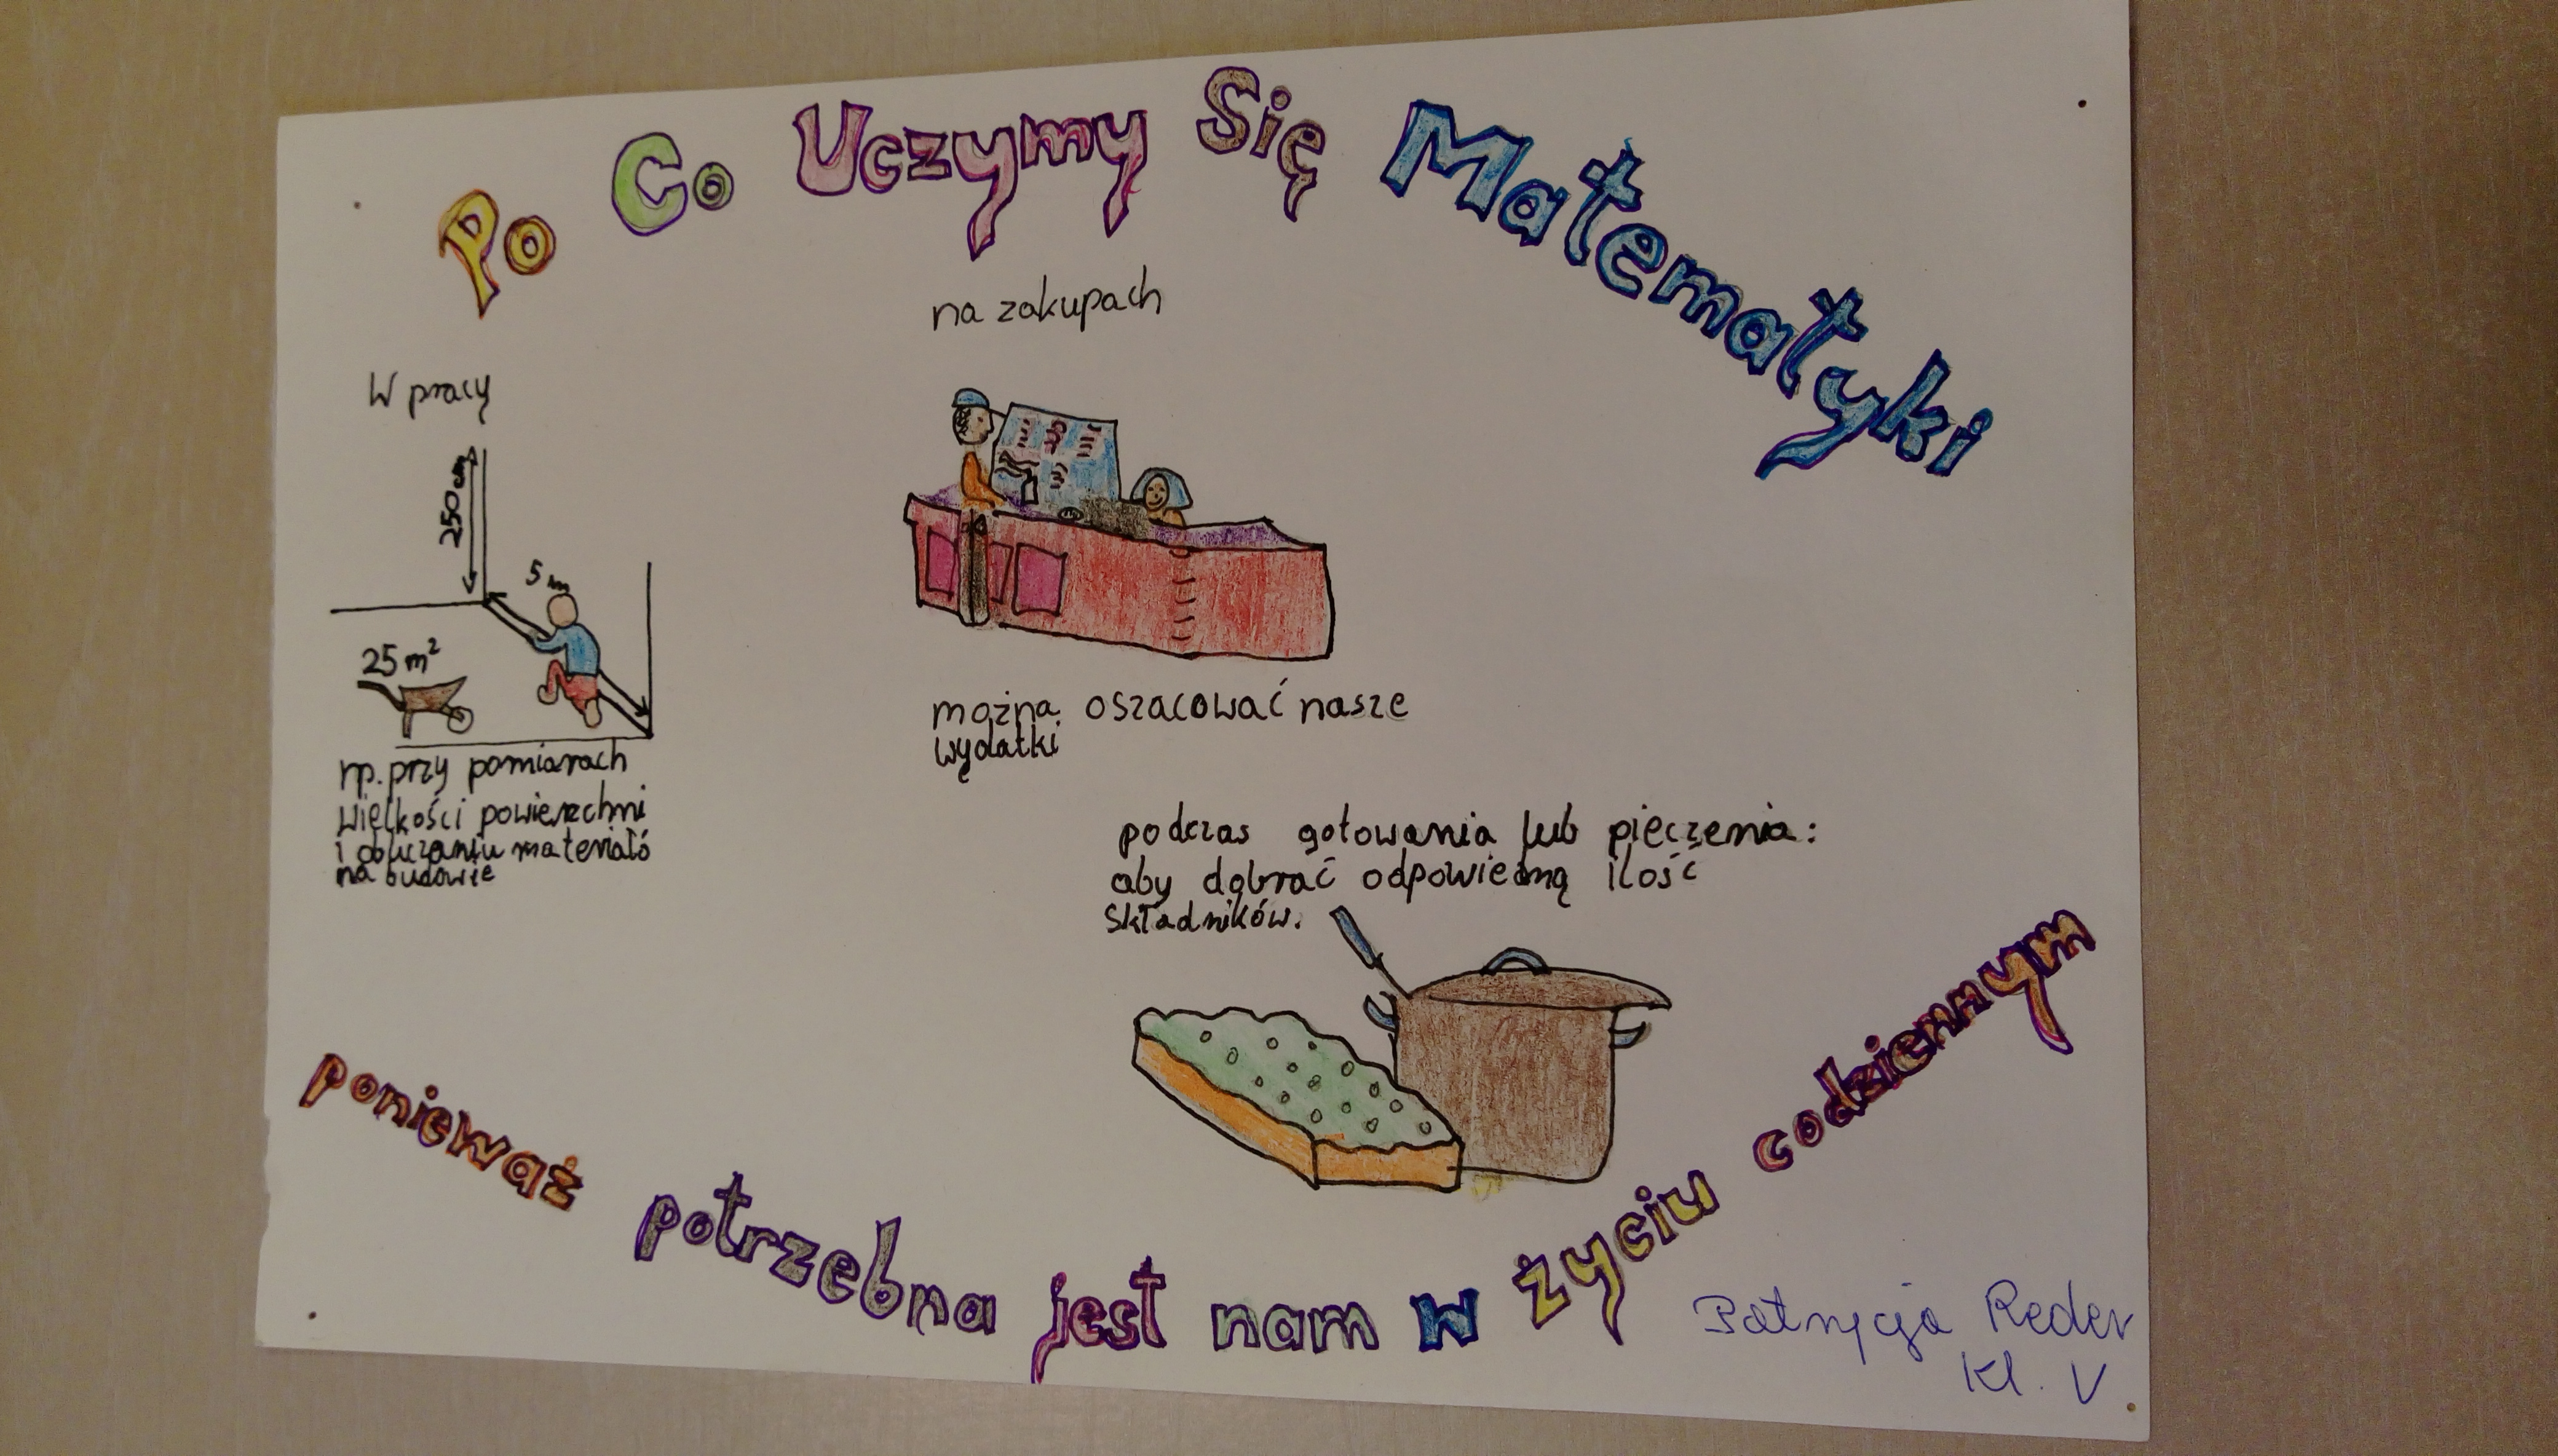 Po Co Uczymy Się Matematyki
na zakupach
W pracy
250 cm
5 m
25 m²
np. przy pomiarach
wielkości powierzchni
i obliczaniu materiałó
na budowie
można oszacować nasze
wydatki
podczas gotowania lub pieczenia:
aby dobrać odpowiedną ilość
składników.
ponieważ potrzebna jest nam w życiu codziennym
Patrycja Reder
Kl. V